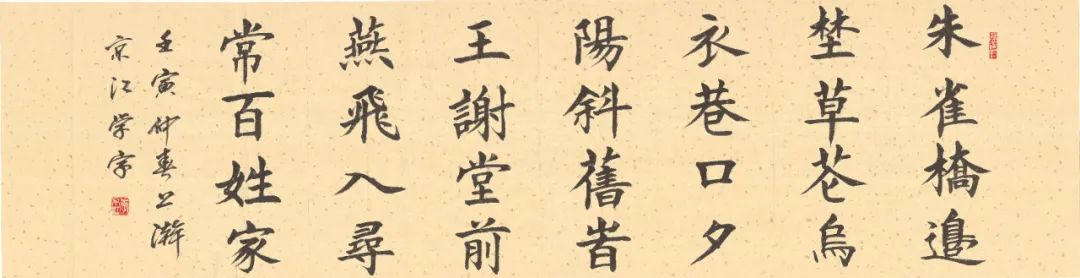 朱雀橋邊
埜草芲烏
衣巷口夕
陽斜舊旹
王謝堂前
燕飛入尋
常百姓家
壬寅仲春上澣
京江学宇